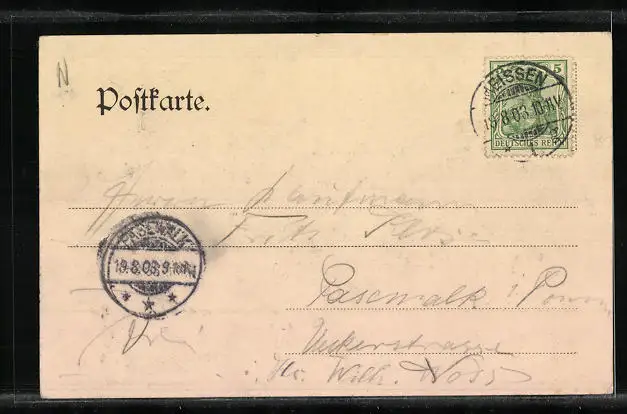 N
Postkarte.
5
MEISSEN
19.8.03.10-11V.
DEUTSCHES REICH
Herrn Kaufmann
Fritz
PASEWALK
19.8.03.9-10N
Pasewalk i Pomm
Ueckerstrasse
Wilh.